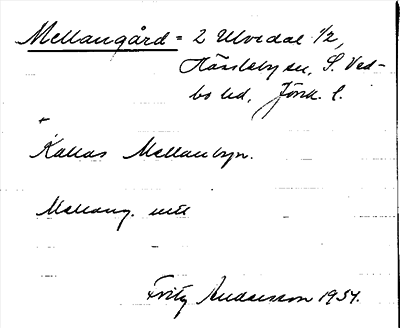 Mellangård = 2 Ulvedal 1/2,
Hässleby sn, S. Ved-
bo hd, Jönk. l.
+
Kallas Mellanbyn.
Mellang. mtl
Fritz Andersson 1954.